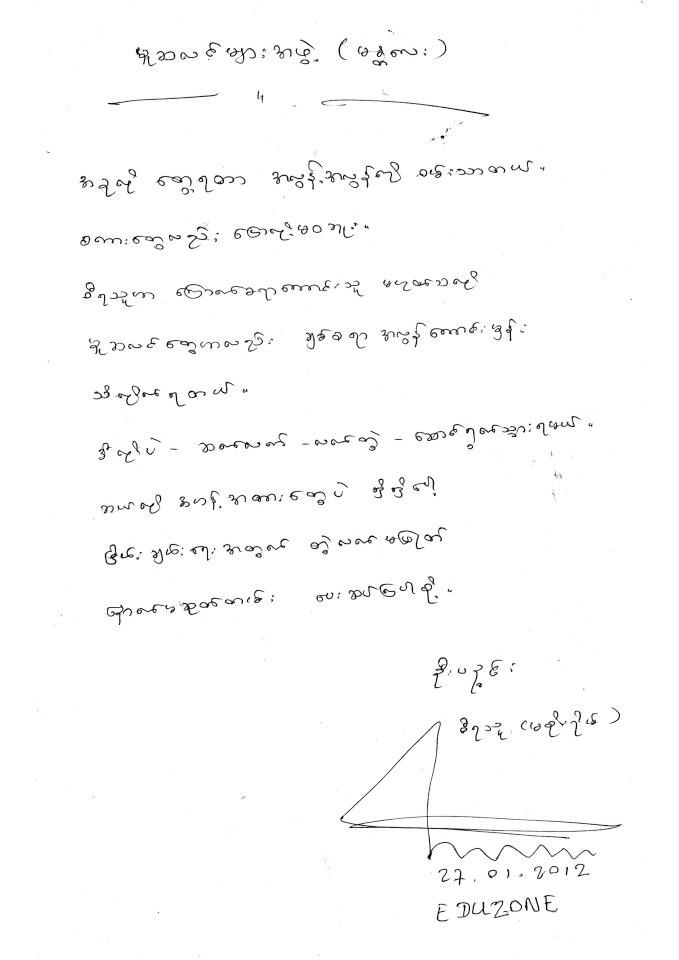 သူဆလင်များအဖွဲ့ (မန္တလေး)
၄
အခုလို တွေ့ရတာ အလွန့်အလွန်ကို ဝမ်းသာတယ်။
စကားတွေလည်း မပြောနိုင်
ဇီရသူဟာ ကြောက်ခရာကောင်းသူ မဟုတ်သလို
တွေဟာလည်း ချစ်ခရာ အလွန်ကောင်းမှန်း
သိလိုက်ရတယ်။
ဒီလိုပဲ - ဆက်လက် - လက်တွဲ - ဆောင်ရွက်သွားရမယ်။
ဘယ်လို အဟန့်အတားတွေပဲ ရှိရှိပေါ့
ငြိမ်းချမ်းရေးအတွက် တွဲလက်မဖြုတ်
နောက်မဆုတ်တမ်း ပေးဆပ်ကြပါစို့။
ဦးပဉ္ဇင်း
ဇီရသူ (မစိုးရိမ်)
27.01.2012
EDUZONE